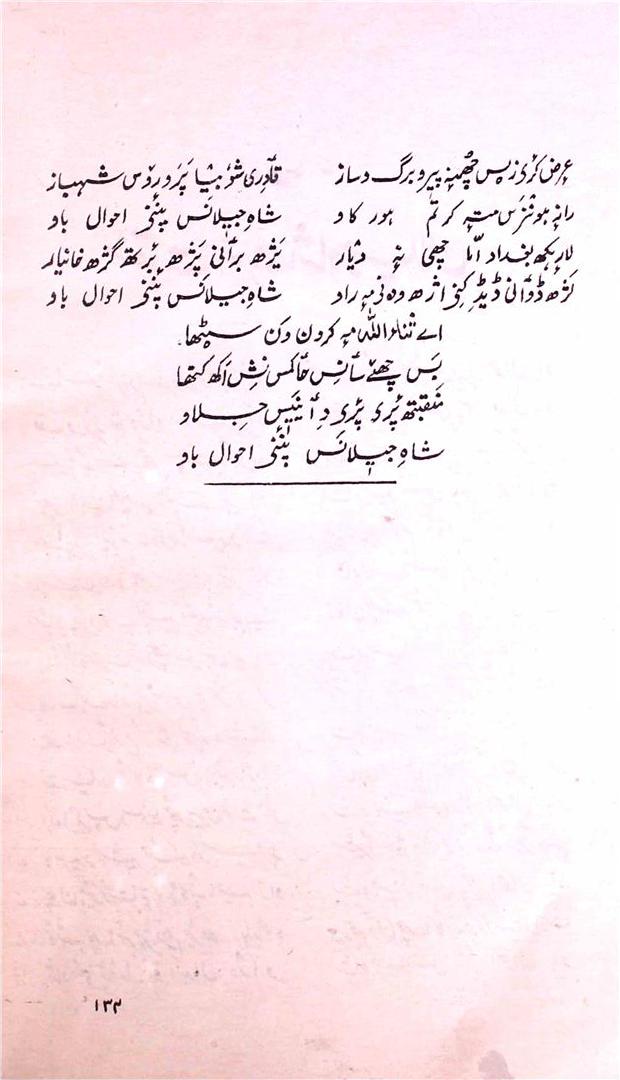 عرض کرٕی زیس چھُنہٕ پیرو برگ دساز قادری شوٗبہٕ یا پَرورٕدس شہباز
رانہٕ ہونٛزَس متہٕ کر تم ہور کاو شاہِ جیلانَس پَننُی احوال باو
لاریکھ بغداد امّا چھی نہٕ دٔیار یَژھ برٛأنی پَژھ پرکھ گژھ خانیار
گژھ ڈۄأنی ڈیڈِ کنی اژھ وہ نہٕ راد شاہِ جیلانَس پَننُی احوال باو
اے ثناءاللہ مہٕ کردن ون سٮ۪ٹھا
بَس چھئے سٲنِس حٲکمس نِش اَکھ کتھا
منقبتھ پٔری پٔری دِ أئینَس جِلاو
شاہِ جیلانَس پَننُی احوال باو
۱۳۲